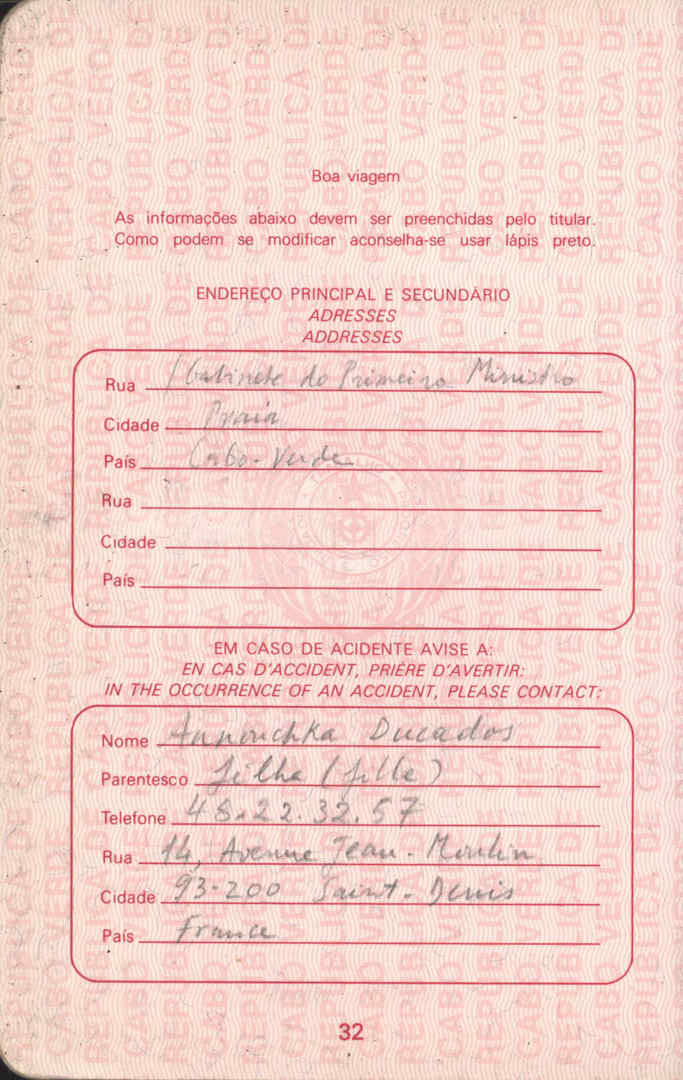 Boa viagem
As informações abaixo devem ser preenchidas pelo titular.
Como podem se modificar aconselha-se usar lápis preto.
ENDEREÇO PRINCIPAL E SECUNDÁRIO
ADRESSES
ADDRESSES
Rua Gabinete do Primeiro Ministro
Cidade Praia
País Cabo-Verde
Rua
Cidade
País
EM CASO DE ACIDENTE AVISE A:
EN CAS D'ACCIDENT, PRIÉRE D'AVERTIR:
IN THE OCCURRENCE OF AN ACCIDENT, PLEASE CONTACT:
Nome Annouchka Ducados
Parentesco filha (fille)
Telefone 48.22.32.57
Rua 14, Avenue Jean-Moulin
Cidade 93-200 Saint-Denis
País France
32